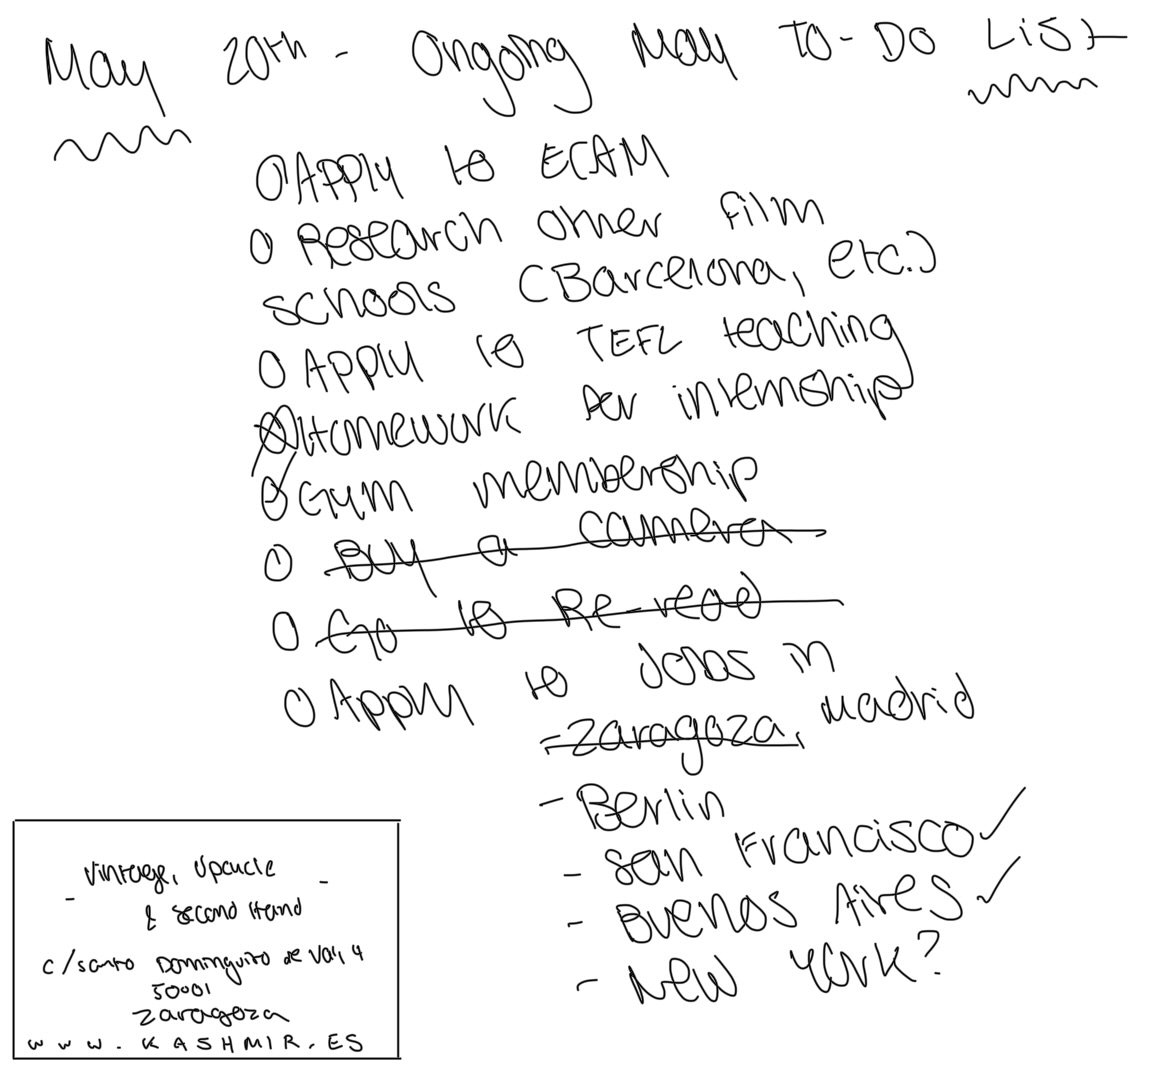 May 20th - Ongoing May To-Do List
O Apply to ECAM
O Research other film
schools (Barcelona, etc.)
O Apply to TEFL teaching
O Homework for internship
O Gym membership
O Buy a camera
O Go to Re-read
O Apply to Jobs in
- Zaragoza, Madrid
- Berlin
- San Francisco ✓
- Buenos Aires ✓
- New York?
- Vintage, Upcycle -
& Second Hand
c/santo Dominguito de Val, 4
50001
Zaragoza
www.KASHMIR.ES